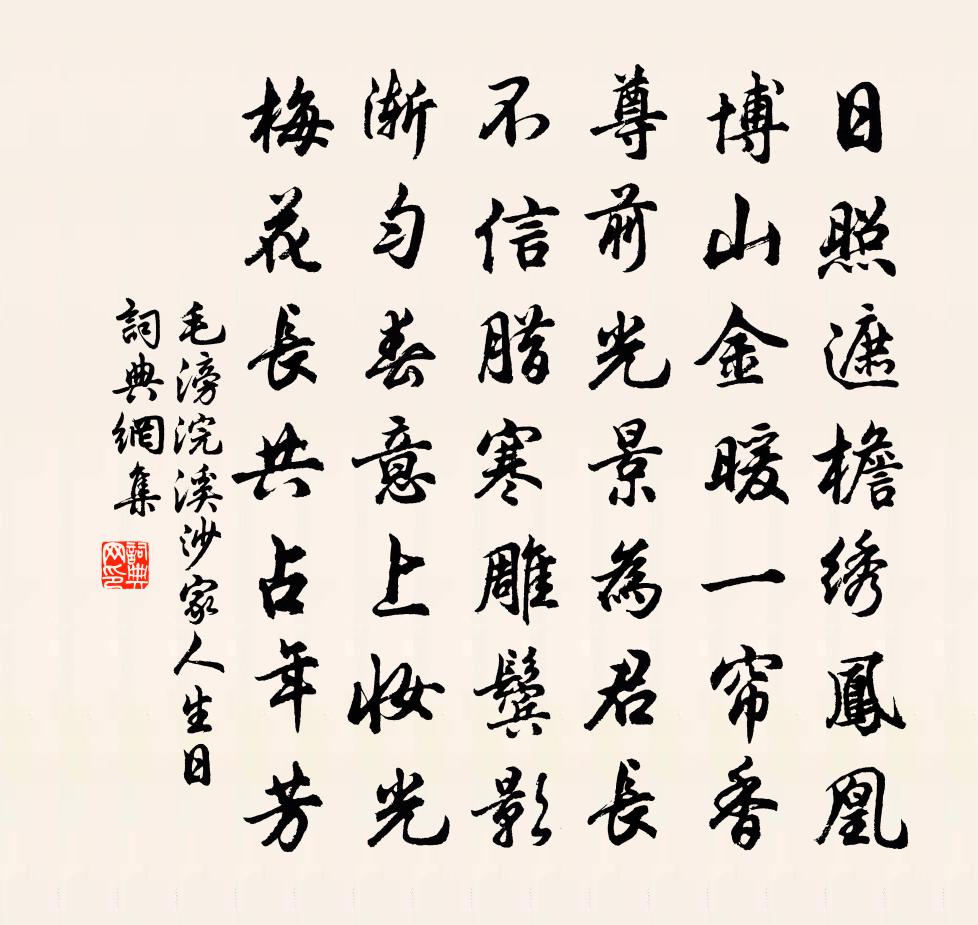 日照遮檐绣鳳凰
博山金暖一帘香
尊前光景為君長
不信腊寒雕鬓影
漸匀春意上妝光
梅花長共占年芳
毛滂浣溪沙家人生日
詞典網集
詞典网印